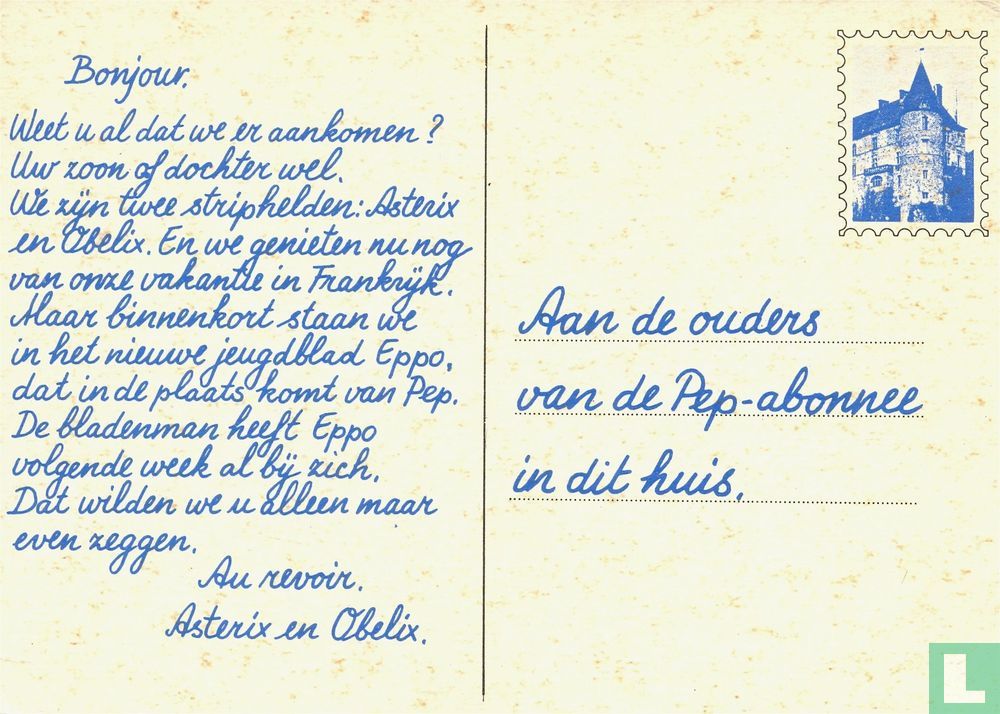 Bonjour.
Weet u al dat we er aankomen?
Uw zoon of dochter wel.
We zijn twee striphelden: Asterix
en Obelix. En we genieten nu nog
van onze vakantie in Frankrijk.
Maar binnenkort staan we
in het nieuwe jeugdblad Eppo,
dat in de plaats komt van Pep.
De bladenman heeft Eppo
volgende week al bij zich.
Dat wilden we u alleen maar
even zeggen.
Au revoir.
Asterix en Obelix.
Aan de ouders
van de Pep-abonnee
in dit huis.
L